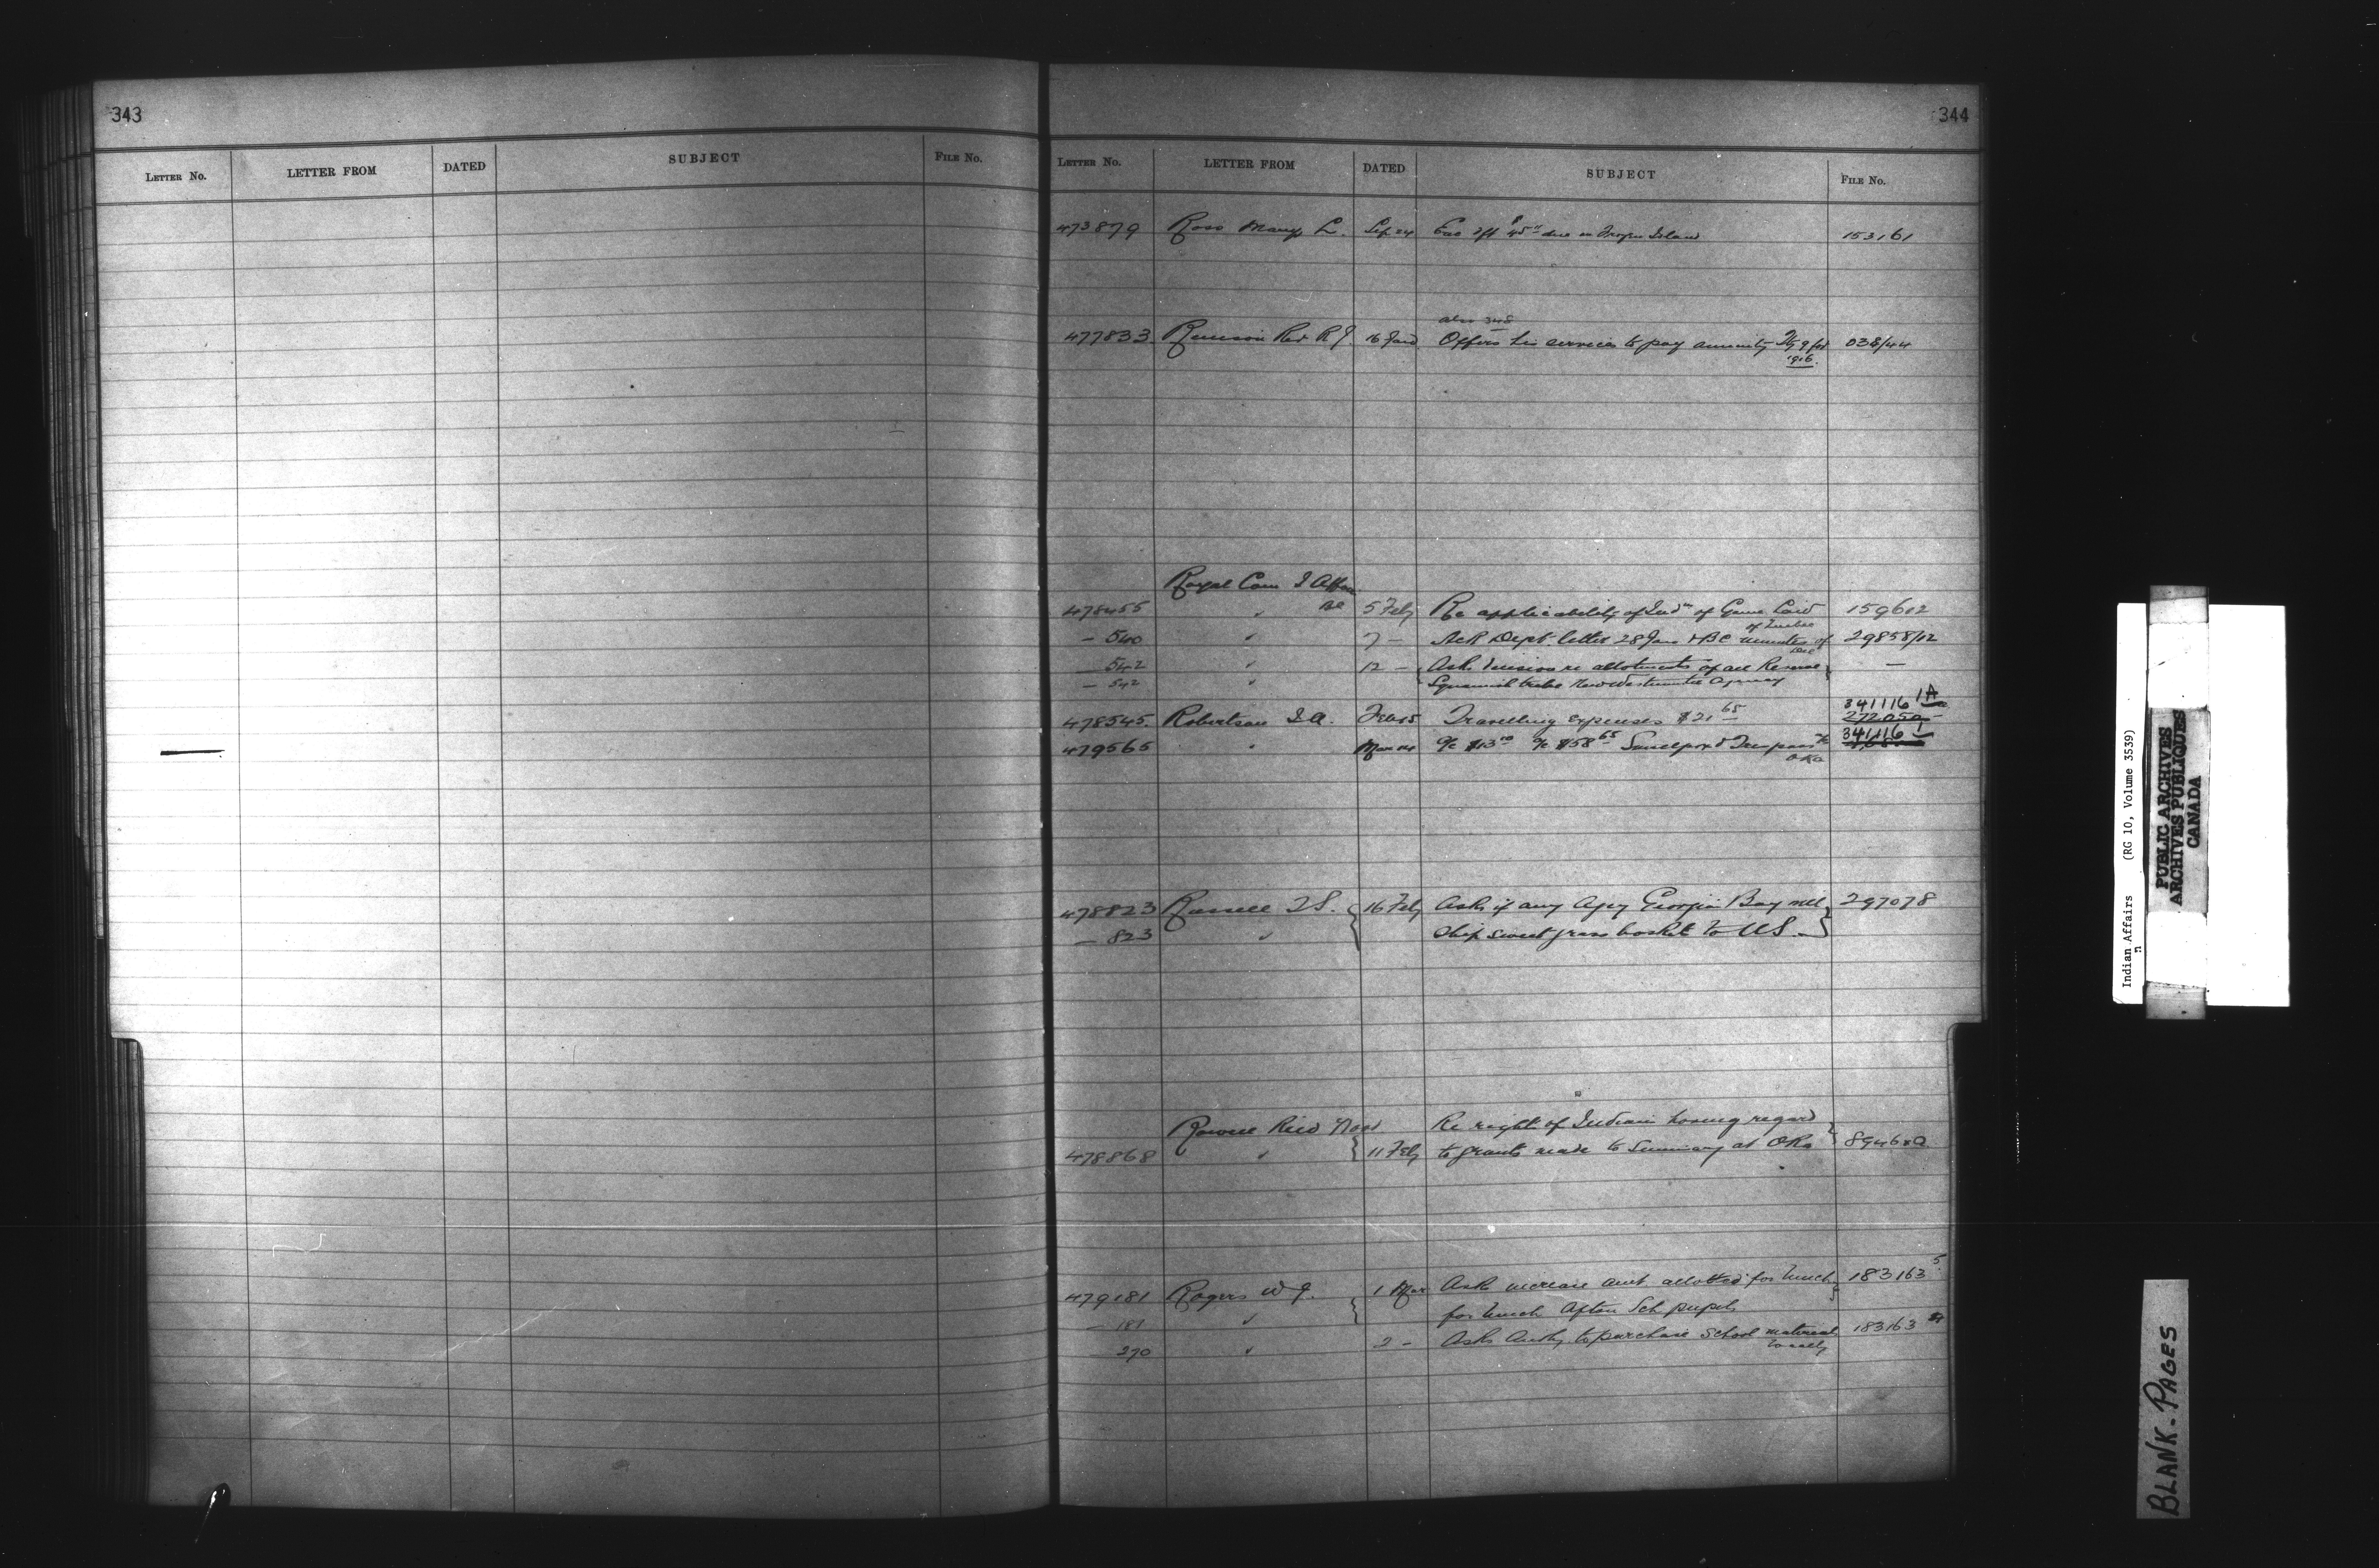 343
LETTER No. LETTER FROM DATED SUBJECT FILE No.
344
LETTER No. LETTER FROM DATED SUBJECT FILE No.
473879 Ross Mary L. Sep 24 45 due on Island 153161
also 348
477833 Rev R J. 16 Jan Offers his services to pay annuity 038/44
1916.
Royal Com I Affairs
478455 " BC 5 Feby Re applicability of Inds of Game Law 159612
of Quebec
- 540 " 7 - Ack Dept. letter 28 Jan + BC minutes of 29858/12
- 542 " 12 - Asks decision re allotments of all Reserve —
- 542 " Squamish tribe New Westminster Agency
478545 Robertson I A. Feb 15 Travelling expenses $21 65 341116 1A
272050
479565 " Mar 14 a/c $13 a/c $58 65 341116 1
Oka
478823 Russell 16 Feby Asks if any Agcy Georgian Bay will 297078
- 823 " Ship sweet grass basket to US.
Re right of Indians having regard
478868 " 11 Feby to grants made to Seminary at Oka
479181 Rogers W J. 1 Mar Asks increase amt. allotted for lunch 183163 5
- 181 " for lunch Afton Sch pupils
270 " 2 - Asks Authy. to purchase School material 183163
locally
Indian Affairs (RG 10, Volume 3539)
PUBLIC ARCHIVES
ARCHIVES PUBLIQUES
CANADA
BLANK-PAGES